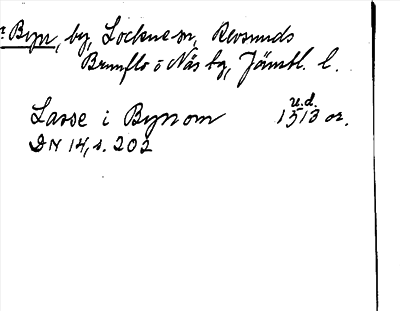 Byn, by, Lockne sn, Revsunds
Brunflo o Näs tg, Jämtl. l.
u.d.
Lasse i Bynom 1513 or.
DN 14, s. 202